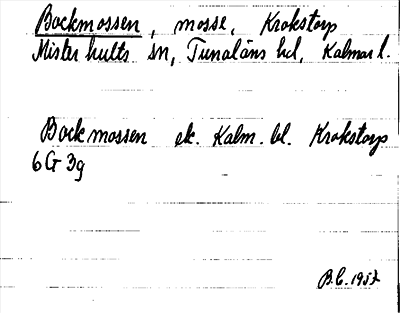 Bockmossen, mosse, Krokstorp
Misterhults sn, Tunaläns hd, Kalmar l.
Bockmossen ek. Kalm. bl. Krokstorp
6G 3g
B.C. 1957